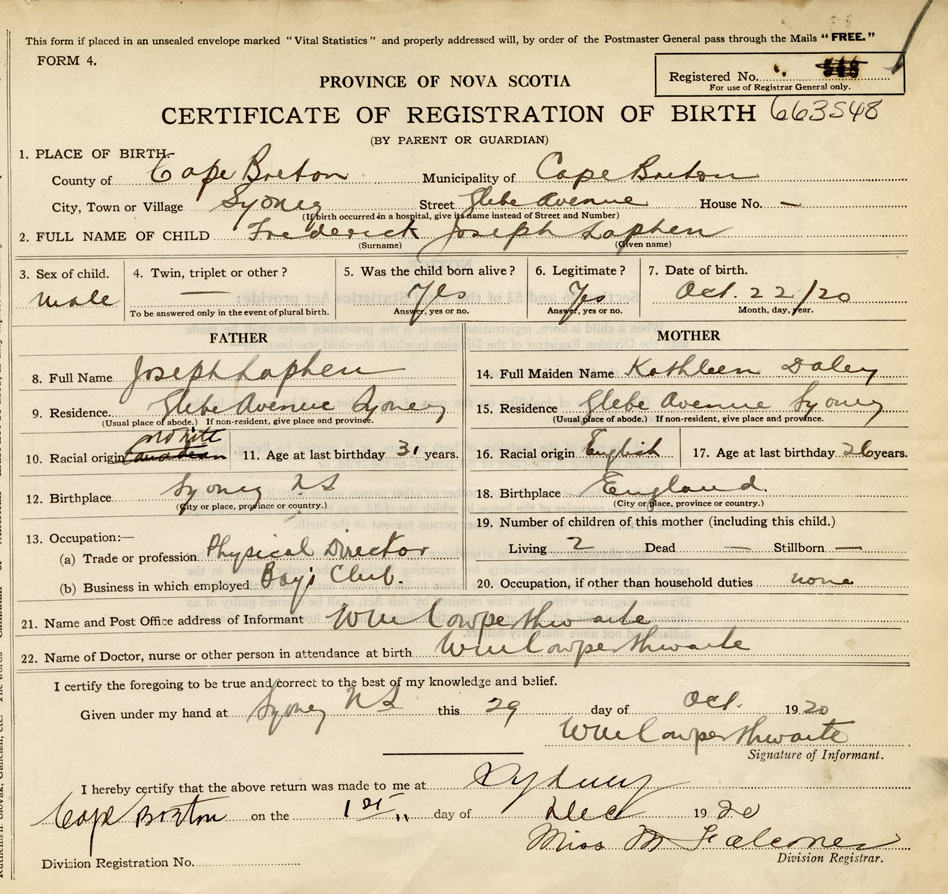 This form if placed in an unsealed envelope marked "Vital Statistics" and properly addressed will, by order of the Postmaster General pass through the Mails "FREE."
FORM 4.
PROVINCE OF NOVA SCOTIA
Registered No.
For use of Registrar General only.
CERTIFICATE OF REGISTRATION OF BIRTH 663548
(BY PARENT OR GUARDIAN)
1. PLACE OF BIRTH—
County of Cape Breton Municipality of Cape Breton
City, Town or Village Sydney Street Glebe Avenue House No. —
(If birth occurred in a hospital, give its name instead of Street and Number)
2. FULL NAME OF CHILD Frederick Joseph Lophen
(Surname) (Given name)
3. Sex of child. 4. Twin, triplet or other? 5. Was the child born alive? 6. Legitimate? 7. Date of birth.
male — Yes Yes Oct. 22/20
To be answered only in the event of plural birth. Answer, yes or no. Answer, yes or no. Month, day, year.
FATHER MOTHER
8. Full Name Joseph Lophen 14. Full Maiden Name Kathleen Daley
9. Residence Glebe Avenue Sydney 15. Residence Glebe Avenue Sydney
(Usual place of abode.) If non-resident, give place and province. (Usual place of abode.) If non-resident, give place and province.
10. Racial origin 11. Age at last birthday 31 years. 16. Racial origin English 17. Age at last birthday 26 years.
12. Birthplace Sydney NS 18. Birthplace England.
(City or place, province or country.) (City or place, province or country.)
13. Occupation:— 19. Number of children of this mother (including this child.)
(a) Trade or profession Physical Director Living 2 Dead — Stillborn —
(b) Business in which employed Boy's Club. 20. Occupation, if other than household duties none
21. Name and Post Office address of Informant Wm Cowperthwaite
22. Name of Doctor, nurse or other person in attendance at birth Wm Cowperthwaite
I certify the foregoing to be true and correct to the best of my knowledge and belief.
Given under my hand at Sydney NS this 29 day of Oct. 1920
Wm Cowperthwaite
Signature of Informant.
I hereby certify that the above return was made to me at Sydney
Cape Breton on the 1st day of Dec 1920
Miss M Falconer
Division Registrar.
Division Registration No.